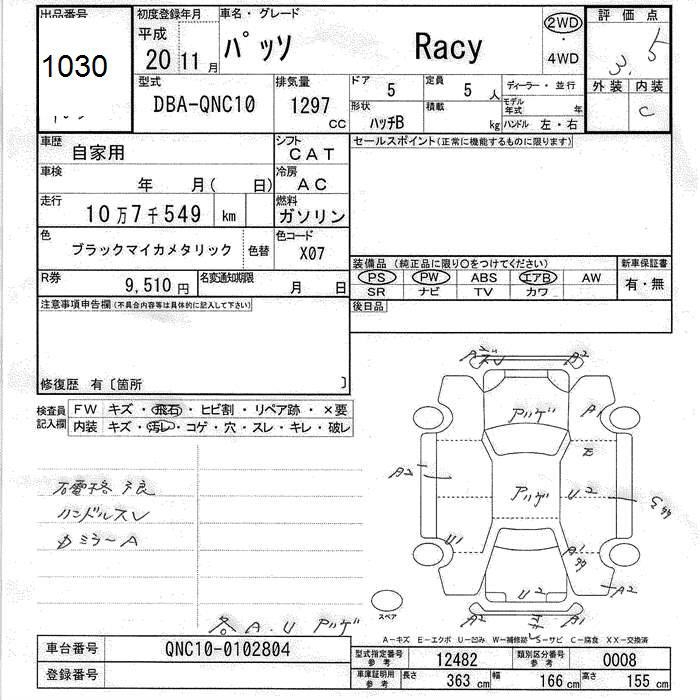 出品番号 初度登録年月 車名・グレード 評価点
1030 平成 20 11月 パッソ Racy 2WD 4WD 3.5
型式 排気量 ドア 定員 ディーラー・並行 外装 内装
DBA-QNC10 1297 CC 5 5人 モデル年式 年 C
形状 積載 kg ハンドル 左・右
ハッチB
車歴 自家用 シフト CAT セールスポイント(正常に機能するものに限ります)
車検 年 月( 日) 冷房 AC
走行 10万7千549 km 燃料 ガソリン
色 ブラックマイカメタリック 色替 色コード X07
装備品(純正品に限り○をつけてください) 新車保証書
PS PW ABS エアB AW 有・無
SR ナビ TV カワ
R券 9,510円 名変通知期限 月 日
後日品
注意事項申告欄(不具合内容等は具体的に記入して下さい)
修復歴 有〔箇所 〕
検査員記入欄 FW キズ・飛石・ヒビ割・リペア跡・×要
内装 キズ・汚レ・コゲ・穴・スレ・キレ・破レ
A2 A2
アツゲ A1
E
A2 アツゲ U2
ハンドルスレ
カミラーA
U1 A1
U2 A2
A2 A1
スペア
各A.U アツゲ
A-キズ E-エクボ U-凹み W-補修跡 S-サビ C-腐食 XX-交換済
車台番号 QNC10-0102804
登録番号
型式指定番号 参考 12482 類別区分番号 参考 0008
車庫証明用 参考 長さ 363cm 幅 166cm 高さ 155cm